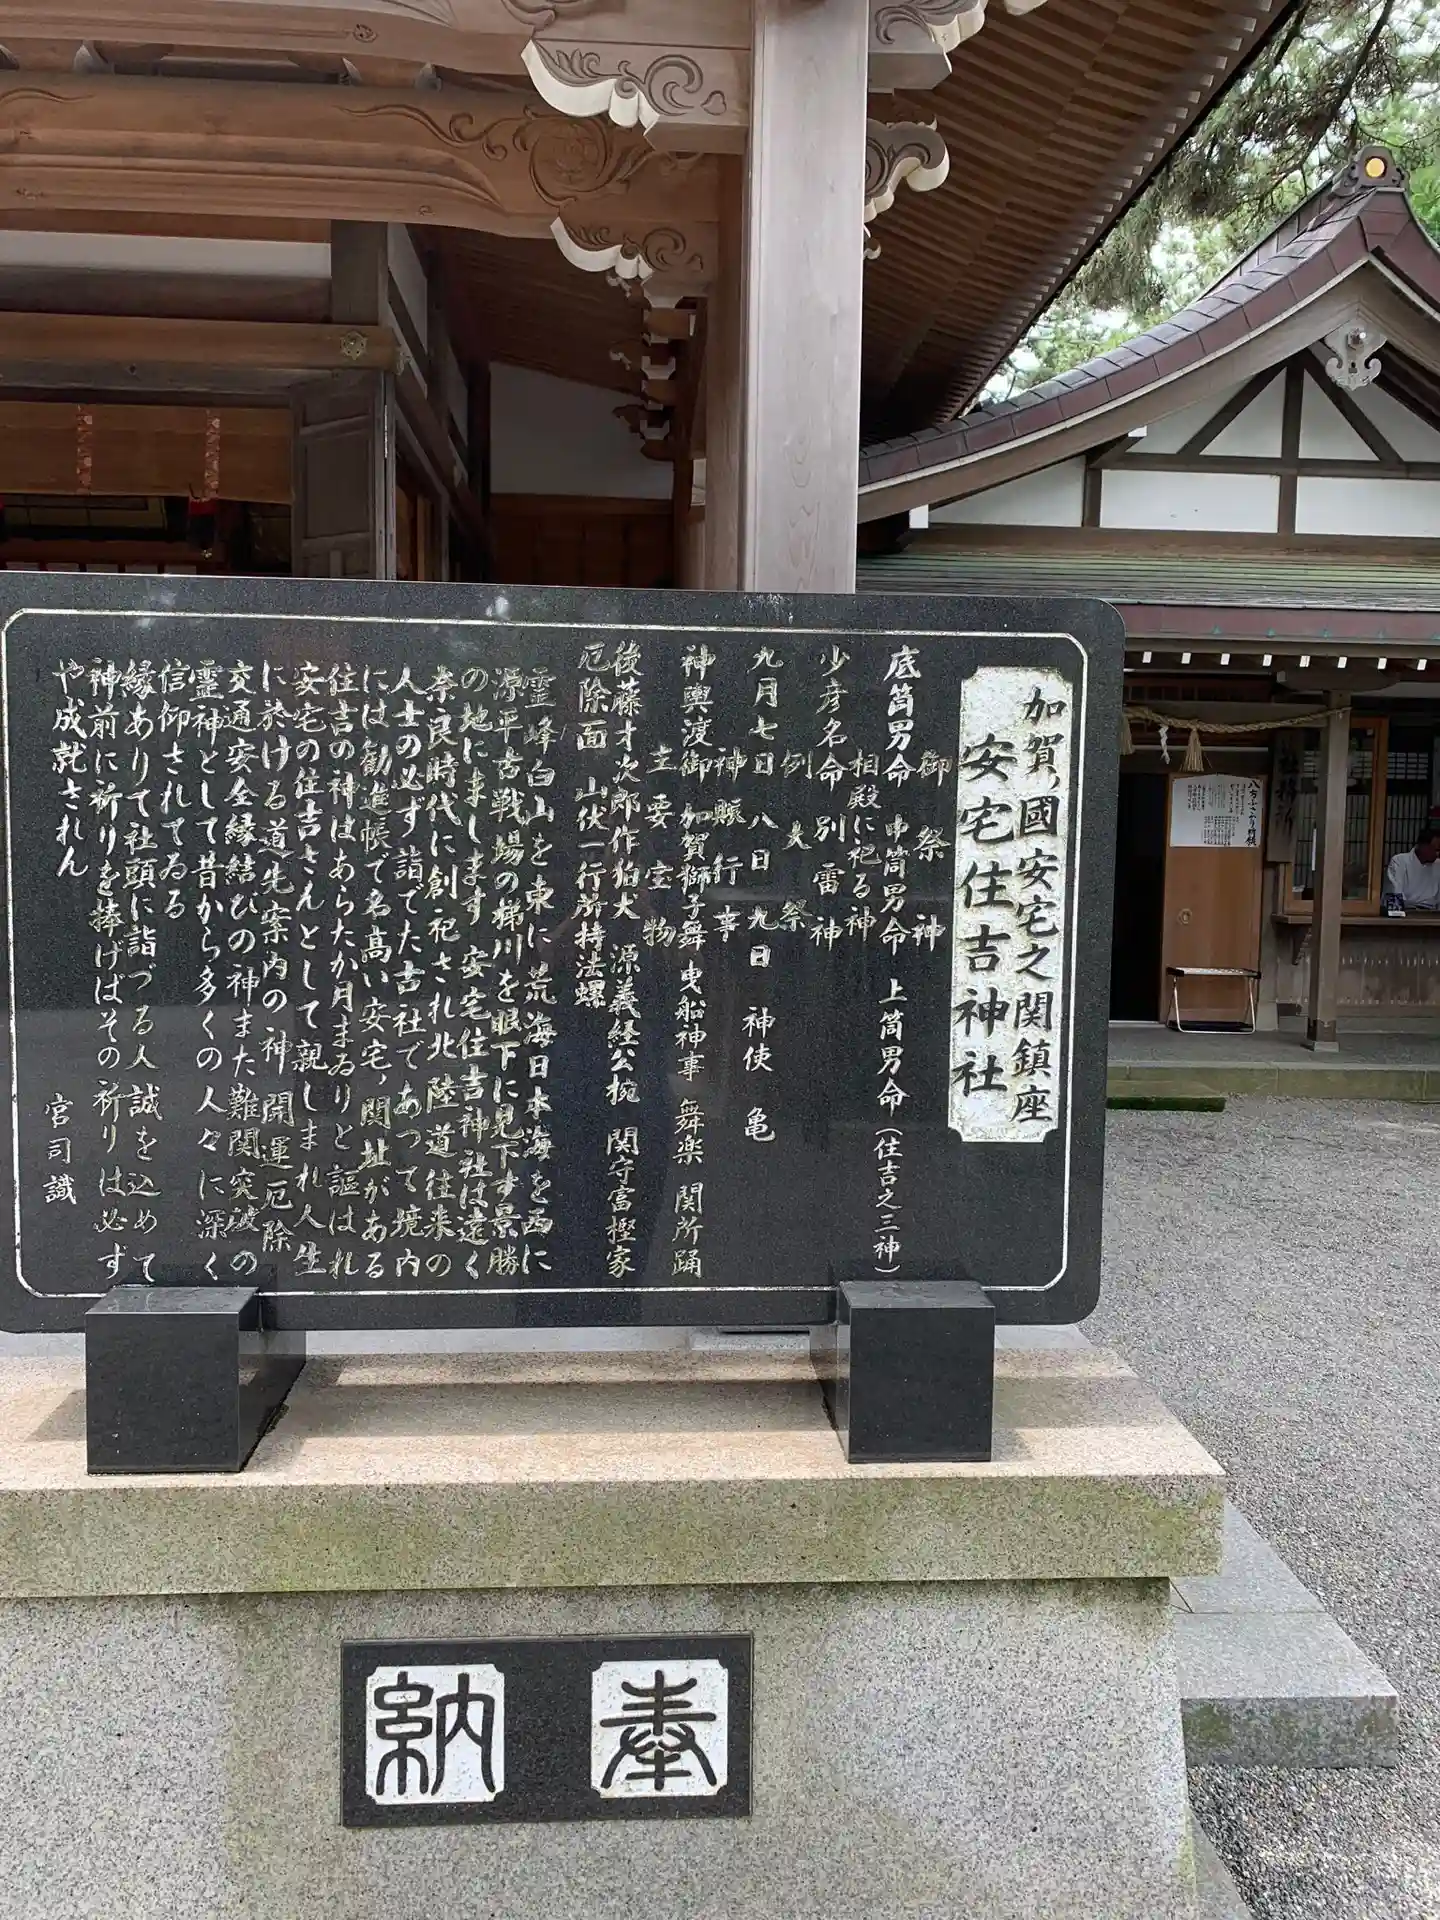 加賀ノ國安宅之関鎮座
安宅住吉神社
御祭神
底筒男命 中筒男命 上筒男命(住吉之三神)
相殿に祀る神
少彦名命 別雷神
例大祭
九月七日 八日 九日 神使 亀
神賑行事
神輿渡御 加賀獅子舞 曳船神事 舞楽 関所踊
主要宝物
後藤才次郎作狛犬 源義経公椀 関守富樫家
厄除面 山伏一行所持法螺
霊峰白山を東に荒海日本海を西に
源平古戦場の梯川を眼下に見下す景勝
の地にまします 安宅住吉神社は遠く
奈良時代に創祀され北陸道往来の
人士の必ず詣でた古社であつて境内
には勧進帳で名高い安宅ノ関址がある
住吉の神はあらたか月まゐりと謳はれ
安宅の住吉さんとして親しまれ人生
に於ける道先案内の神 開運厄除
交通安全縁結びの神また難関突破の
霊神として昔から多くの人々に深く
信仰されてゐる
縁ありて社頭に詣づる人誠を込めて
神前に祈りを捧げばその祈りは必ず
や成就されん
宮司識
奉納